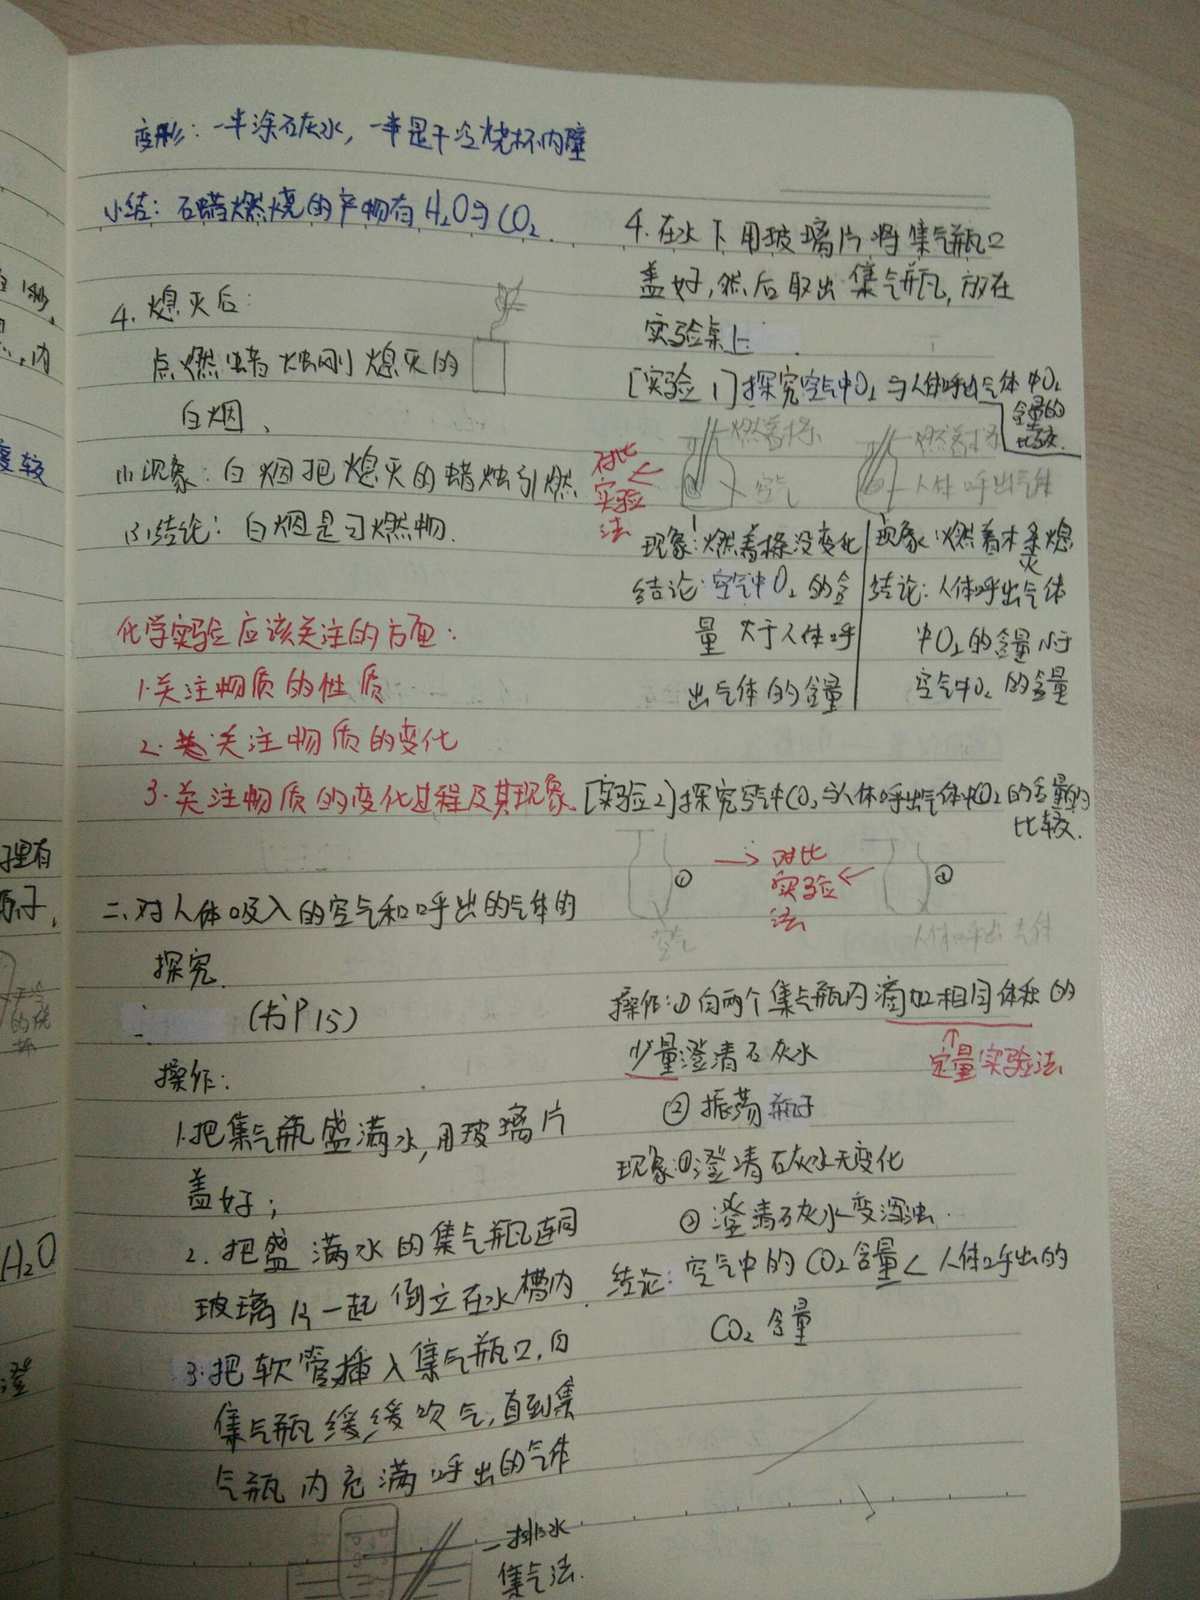 变形：一半涂石灰水，一半是干冷烧杯内壁
小结：石蜡燃烧的产物有H₂O与CO₂.
4. 熄灭后：
点燃蜡烛刚熄灭的
白烟、
(1)现象：白烟把熄灭的蜡烛引燃
(2)结论：白烟是可燃物.
化学实验应该关注的方面：
1.关注物质的性质
2.关注物质的变化
3.关注物质的变化过程及其现象
二.对人体吸入的空气和呼出的气体的
探究.
(书P15)
操作：
1.把集气瓶盛满水,用玻璃片
盖好；
2.把盛满水的集气瓶连同
玻璃片一起倒立在水槽内.
3.把软管插入集气瓶口,向
集气瓶缓缓吹气,直到集
气瓶内充满呼出的气体
排水
集气法.
4.在水下用玻璃片将集气瓶口
盖好,然后取出集气瓶,放在
实验桌上.
[实验1]探究空气中O₂与人体呼出气体中O₂
含量的
比较.
燃着木条
空气
燃着木条
人体呼出气体
对比
实验
法
现象：燃着条没变化
结论：空气中O₂的含
量大于人体呼
出气体的含量
现象：燃着木条熄
灭
结论：人体呼出气体
中O₂的含量小于
空气中O₂的含量
[实验2]探究空气中CO₂与人体呼出气体中CO₂的含量的
比较.
①
空气
对比
实验
法
②
人体呼出气体
操作：①向两个集气瓶内滴加相同体积的
少量澄清石灰水
定量实验法
②振荡瓶子
现象：①澄清石灰水无变化
②澄清石灰水变浑浊.
结论：空气中的CO₂含量<人体呼出的
CO₂含量
H₂O
澄